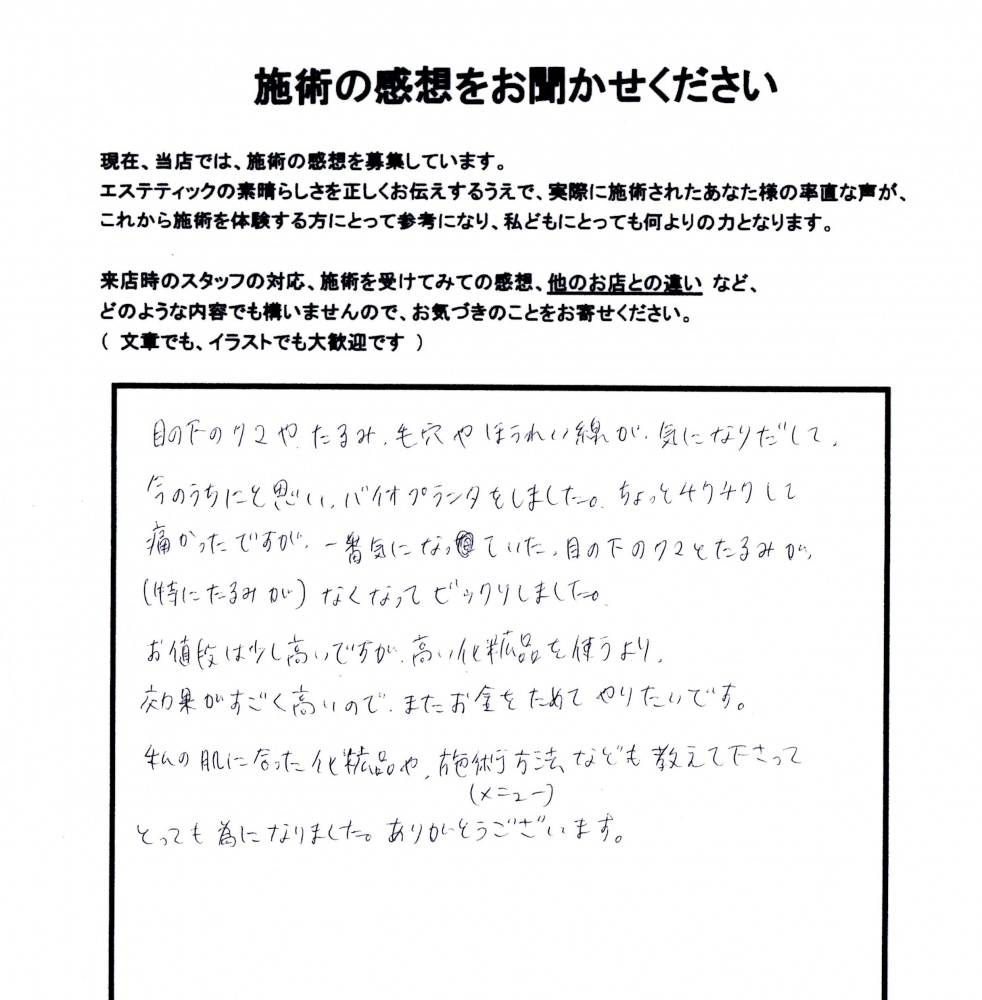 施術の感想をお聞かせください
現在、当店では、施術の感想を募集しています。
エステティックの素晴らしさを正しくお伝えするうえで、実際に施術されたあなた様の率直な声が、
これから施術を体験する方にとって参考になり、私どもにとっても何よりの力となります。
来店時のスタッフの対応、施術を受けてみての感想、他のお店との違い など、
どのような内容でも構いませんので、お気づきのことをお寄せください。
（ 文章でも、イラストでも大歓迎です ）
目の下のクマや、たるみ、毛穴やほうれい線が、気になりだして、
今のうちにと思い、バイオプランタをしました。ちょっとチクチクして
痛かったですが、一番気になっていた、目の下のクマとたるみが、
(特にたるみが) なくなってビックリしました。
お値段は少し高いですが、高い化粧品を使うより、
効果がすごく高いので、またお金をためてやりたいです。
私の肌に合った化粧品や、施術方法なども教えて下さって
(メニュー)
とっても為になりました。ありがとうございます。